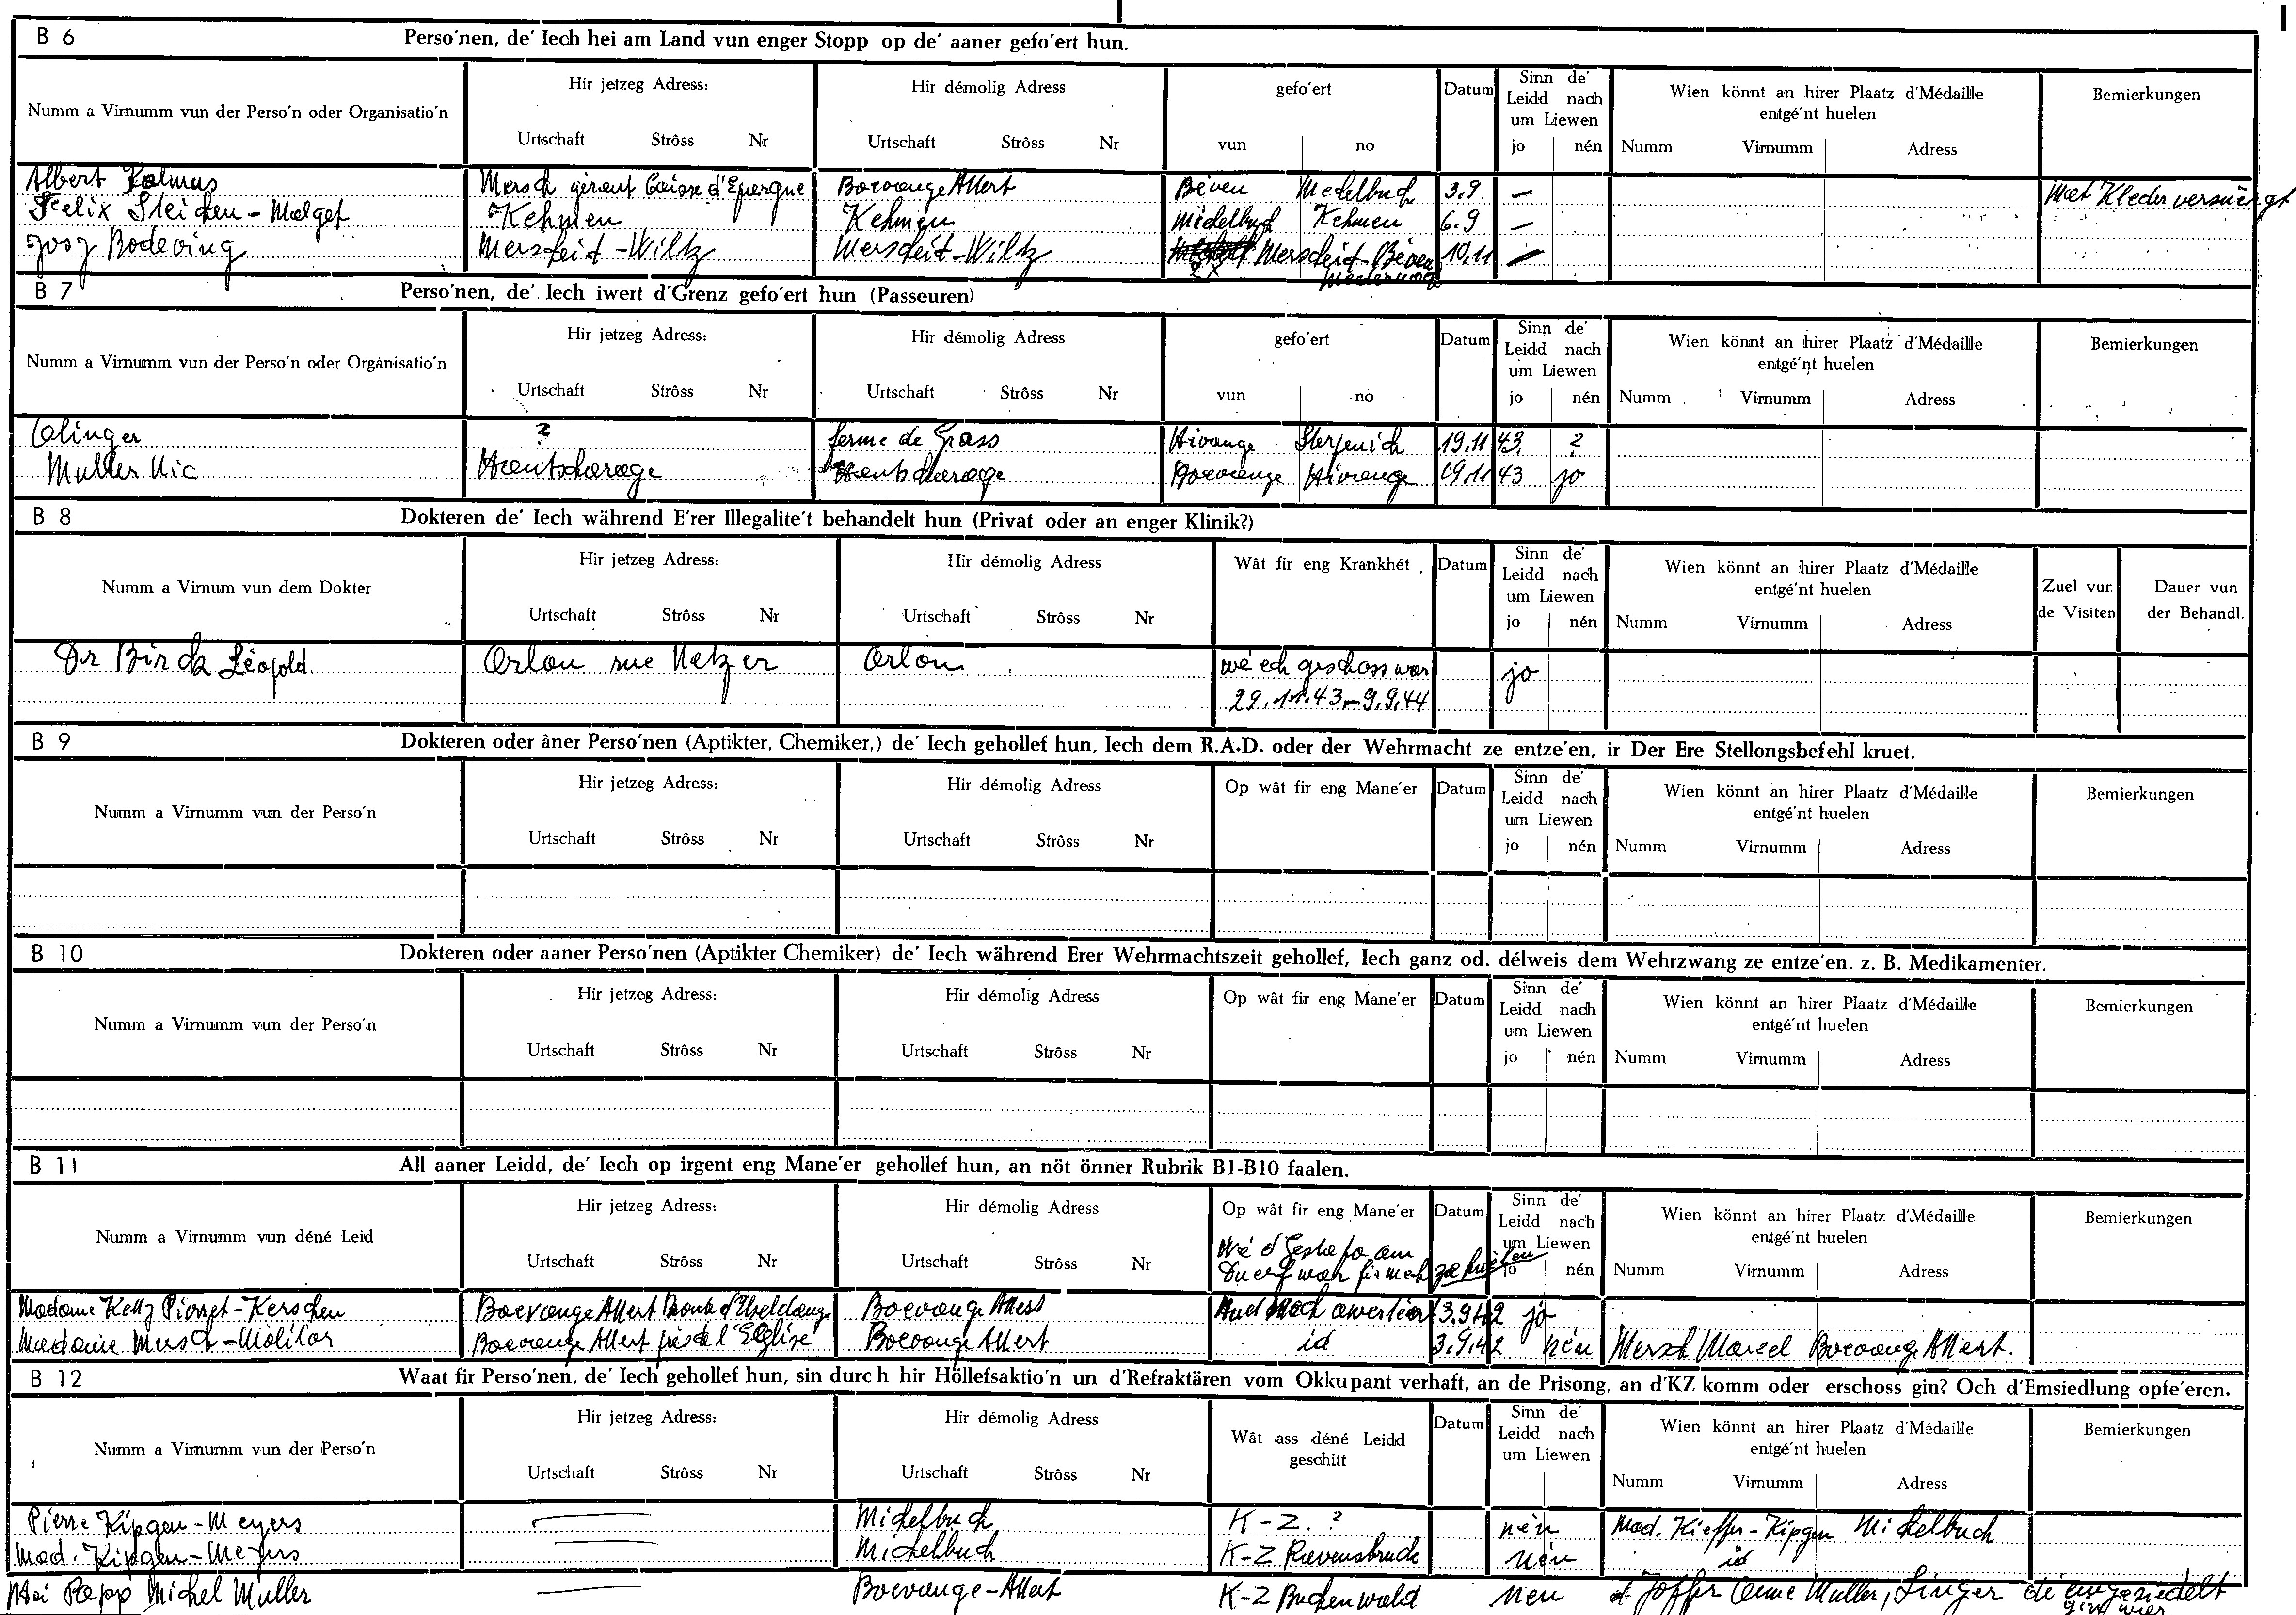 B 6 Perso'nen, de' Iech hei am Land vun enger Stopp op de' aaner gefo'ert hun.
Numm a Virnumm vun der Perso'n oder Organisatio'n
Hir jetzeg Adress:
Urtschaft Strôss Nr
Hir démolig Adress
Urtschaft Strôss Nr
gefo'ert
vun no
Datum
Sinn de'
Leidd nach
um Liewen
jo nén
Wien könnt an hirer Plaatz d'Médaille
entgé'nt huelen
Numm Virnumm Adress
Bemierkungen
Albert Kalmus Mersch gérant Caisse d'Epargne Boevange Attert Béven Michelbuch 3.9 — Met Kleder versuergt
Felix Steichen - Malget Kehmen Kehmen Michelbuch Kehmen 6.9 —
Josy Bodeving Merscheid-Wiltz Merscheid-Wiltz Merscheid - Béven 10.11 —
2x
B 7 Perso'nen, de' Iech iwert d'Grenz gefo'ert hun (Passeuren)
Numm a Virnumm vun der Perso'n oder Organisatio'n
Hir jetzeg Adress:
Urtschaft Strôss Nr
Hir démolig Adress
Urtschaft Strôss Nr
gefo'ert
vun no
Datum
Sinn de'
Leidd nach
um Liewen
jo nén
Wien könnt an hirer Plaatz d'Médaille
entgé'nt huelen
Numm Virnumm Adress
Bemierkungen
Olinger ? ferme de Grass Hivange Sterpenich 19.11 43. ?
Muller Nic Hautcharage Hautcharage Boevange Hivange 19.11 43 jo
B 8 Dokteren de' Iech während E'rer Illegalite't behandelt hun (Privat oder an enger Klinik?)
Numm a Virnum vun dem Dokter
Hir jetzeg Adress:
Urtschaft Strôss Nr
Hir démolig Adress
Urtschaft Strôss Nr
Wât fir eng Krankhét
Datum
Sinn de'
Leidd nach
um Liewen
jo nén
Wien könnt an hirer Plaatz d'Médaille
entgé'nt huelen
Numm Virnumm Adress
Zuel vun
de Visiten
Dauer vun
der Behandl.
Dr Birck Léopold. Arlon rue Netzer Arlon wé ech geschoss war jo
29.11.43 - 9.9.44
B 9 Dokteren oder âner Perso'nen (Aptikter, Chemiker,) de' Iech gehollef hun, Iech dem R.A.D. oder der Wehrmacht ze entze'en, ir Der Ere Stellongsbefehl kruet.
Numm a Virnumm vun der Perso'n
Hir jetzeg Adress:
Urtschaft Strôss Nr
Hir démolig Adress
Urtschaft Strôss Nr
Op wât fir eng Mane'er
Datum
Sinn de'
Leidd nach
um Liewen
jo nén
Wien könnt an hirer Plaatz d'Médaille
entgé'nt huelen
Numm Virnumm Adress
Bemierkungen
B 10 Dokteren oder aaner Perso'nen (Aptikter Chemiker) de' Iech während Erer Wehrmachtszeit gehollef, Iech ganz od. délweis dem Wehrzwang ze entze'en. z. B. Medikamenter.
Numm a Virnumm vun der Perso'n
Hir jetzeg Adress:
Urtschaft Strôss Nr
Hir démolig Adress
Urtschaft Strôss Nr
Op wât fir eng Mane'er
Datum
Sinn de'
Leidd nach
um Liewen
jo nén
Wien könnt an hirer Plaatz d'Médaille
entgé'nt huelen
Numm Virnumm Adress
Bemierkungen
B 11 All aaner Leidd, de' Iech op irgent eng Mane'er gehollef hun, an nöt önner Rubrik B1-B10 faalen.
Numm a Virnumm vun déné Leid
Hir jetzeg Adress:
Urtschaft Strôss Nr
Hir démolig Adress
Urtschaft Strôss Nr
Op wât fir eng Mane'er
Datum
Sinn de'
Leidd nach
um Liewen
jo nén
Wien könnt an hirer Plaatz d'Médaille
entgé'nt huelen
Numm Virnumm Adress
Bemierkungen
Wé d'Gestapo am
Duerf war fir mech ze huelen
Madame Ketty Pierret-Kerschen Boevange Attert Route d'Useldange Boevange Attert 3.9.42 jo
Madame Mersch-Molitor Boevange Attert près de l'Eglise Boevange Attert id 3.9.42 nén Mersch Marcel Boevange Attert.
B 12 Waat fir Perso'nen, de' Iech gehollef hun, sin durch hir Höllefsaktio'n un d'Refraktären vom Okkupant verhaft, an de Prisong, an d'KZ komm oder erschoss gin? Och d'Emsiedlung opfe'eren.
Numm a Virnumm vun der Perso'n
Hir jetzeg Adress:
Urtschaft Strôss Nr
Hir démolig Adress
Urtschaft Strôss Nr
Wât ass déné Leidd
geschitt
Datum
Sinn de'
Leidd nach
um Liewen
Wien könnt an hirer Plaatz d'Médaille
entgé'nt huelen
Numm Virnumm Adress
Bemierkungen
Pierre Kipgen-Meyers — Michelbuch K-Z. ? nén Mad. Kieffer-Kipgen Michelbuch
Mad. Kipgen-Meyers — Michelbuch K-Z Rievensbruck nén id
Mei Papp Michel Muller — Boevange-Attert K-Z Buchenwald nen d'Joffer Anne Muller, Linger dé emgesiedelt
gin wier